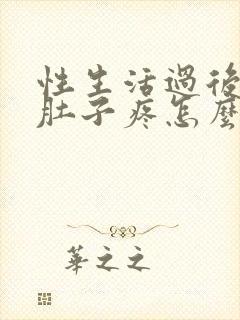 性生活過後
肚子疼怎麼
華之之